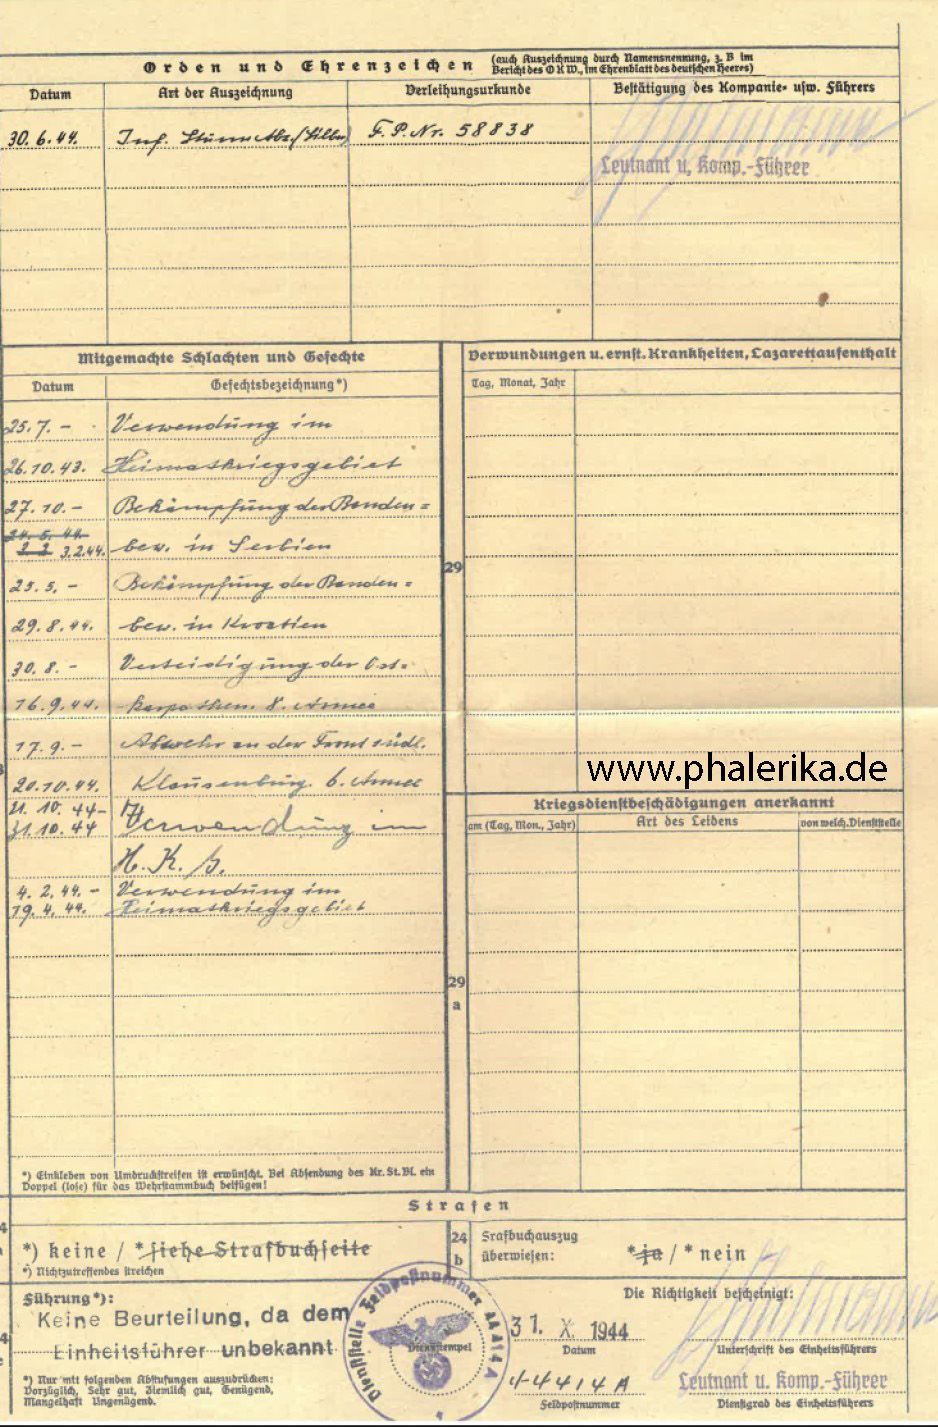 Orden und Ehrenzeichen (auch Auszeichnung durch Namensnennung, z. B im
Bericht des OKW., im Ehrenblatt des deutschen Heeres)
Datum Art der Auszeichnung Verleihungsurkunde Bestätigung des Kompanie- usw. Führers
30.6.44. Inf. Sturm Abz. F.P.Nr. 58838
Leutnant u. Komp.-Führer
Mitgemachte Schlachten und Gefechte
Datum Gefechtsbezeichnung*)
25.7. - Verwendung im
26.10.43. Heimatkriegsgebiet
27.10. - Bekämpfung der Banden=
24.5.44.
2.2 3.2.44. bew. in Serbien
25.5. - Bekämpfung der Banden=
29.8.44. bew. in Kroatien
30.8. - Verteidigung der Ost=
16.9.44. karpathen. 8. Armee
17.9. - Abwehr an der Front südl.
20.10.44. Klausenburg. 6. Armee
21.10.44-
31.10.44 Verwendung im
H.K.G.
4.2.44. - Verwendung im
19.4.44. Heimatkriegsgebiet
*) Einkleben von Umdruckstreifen ist erwünscht. Bei Absendung des Kr. St. Bl. ein
Doppel (lose) für das Wehrstammbuch beifügen!
Verwundungen u. ernst. Krankheiten, Lazarettaufenthalt
Tag, Monat, Jahr
29
www.phalerika.de
Kriegsdienstbeschädigungen anerkannt
am (Tag, Mon., Jahr) Art des Leidens von welch. Dienststelle
29
a
Strafen
*) keine / * siehe Strafbuchseite
*) Nichtzutreffendes streichen
24
b
Srafbuchauszug
überwiesen: *ja / * nein
Führung*):
Keine Beurteilung, da dem
Einheitsführer unbekannt
*) Nur mit folgenden Abstufungen auszudrücken:
Vorzüglich, Sehr gut, Ziemlich gut, Genügend,
Mangelhaft Ungenügend.
Dienststelle Feldpostnummer 44414 A
Dienststempel
31. X. 1944
Datum
44414 A
Feldpostnummer
Die Richtigkeit bescheinigt:
Unterschrift des Einheitsführers
Leutnant u. Komp.-Führer
Dienstgrad des Einheitsführers